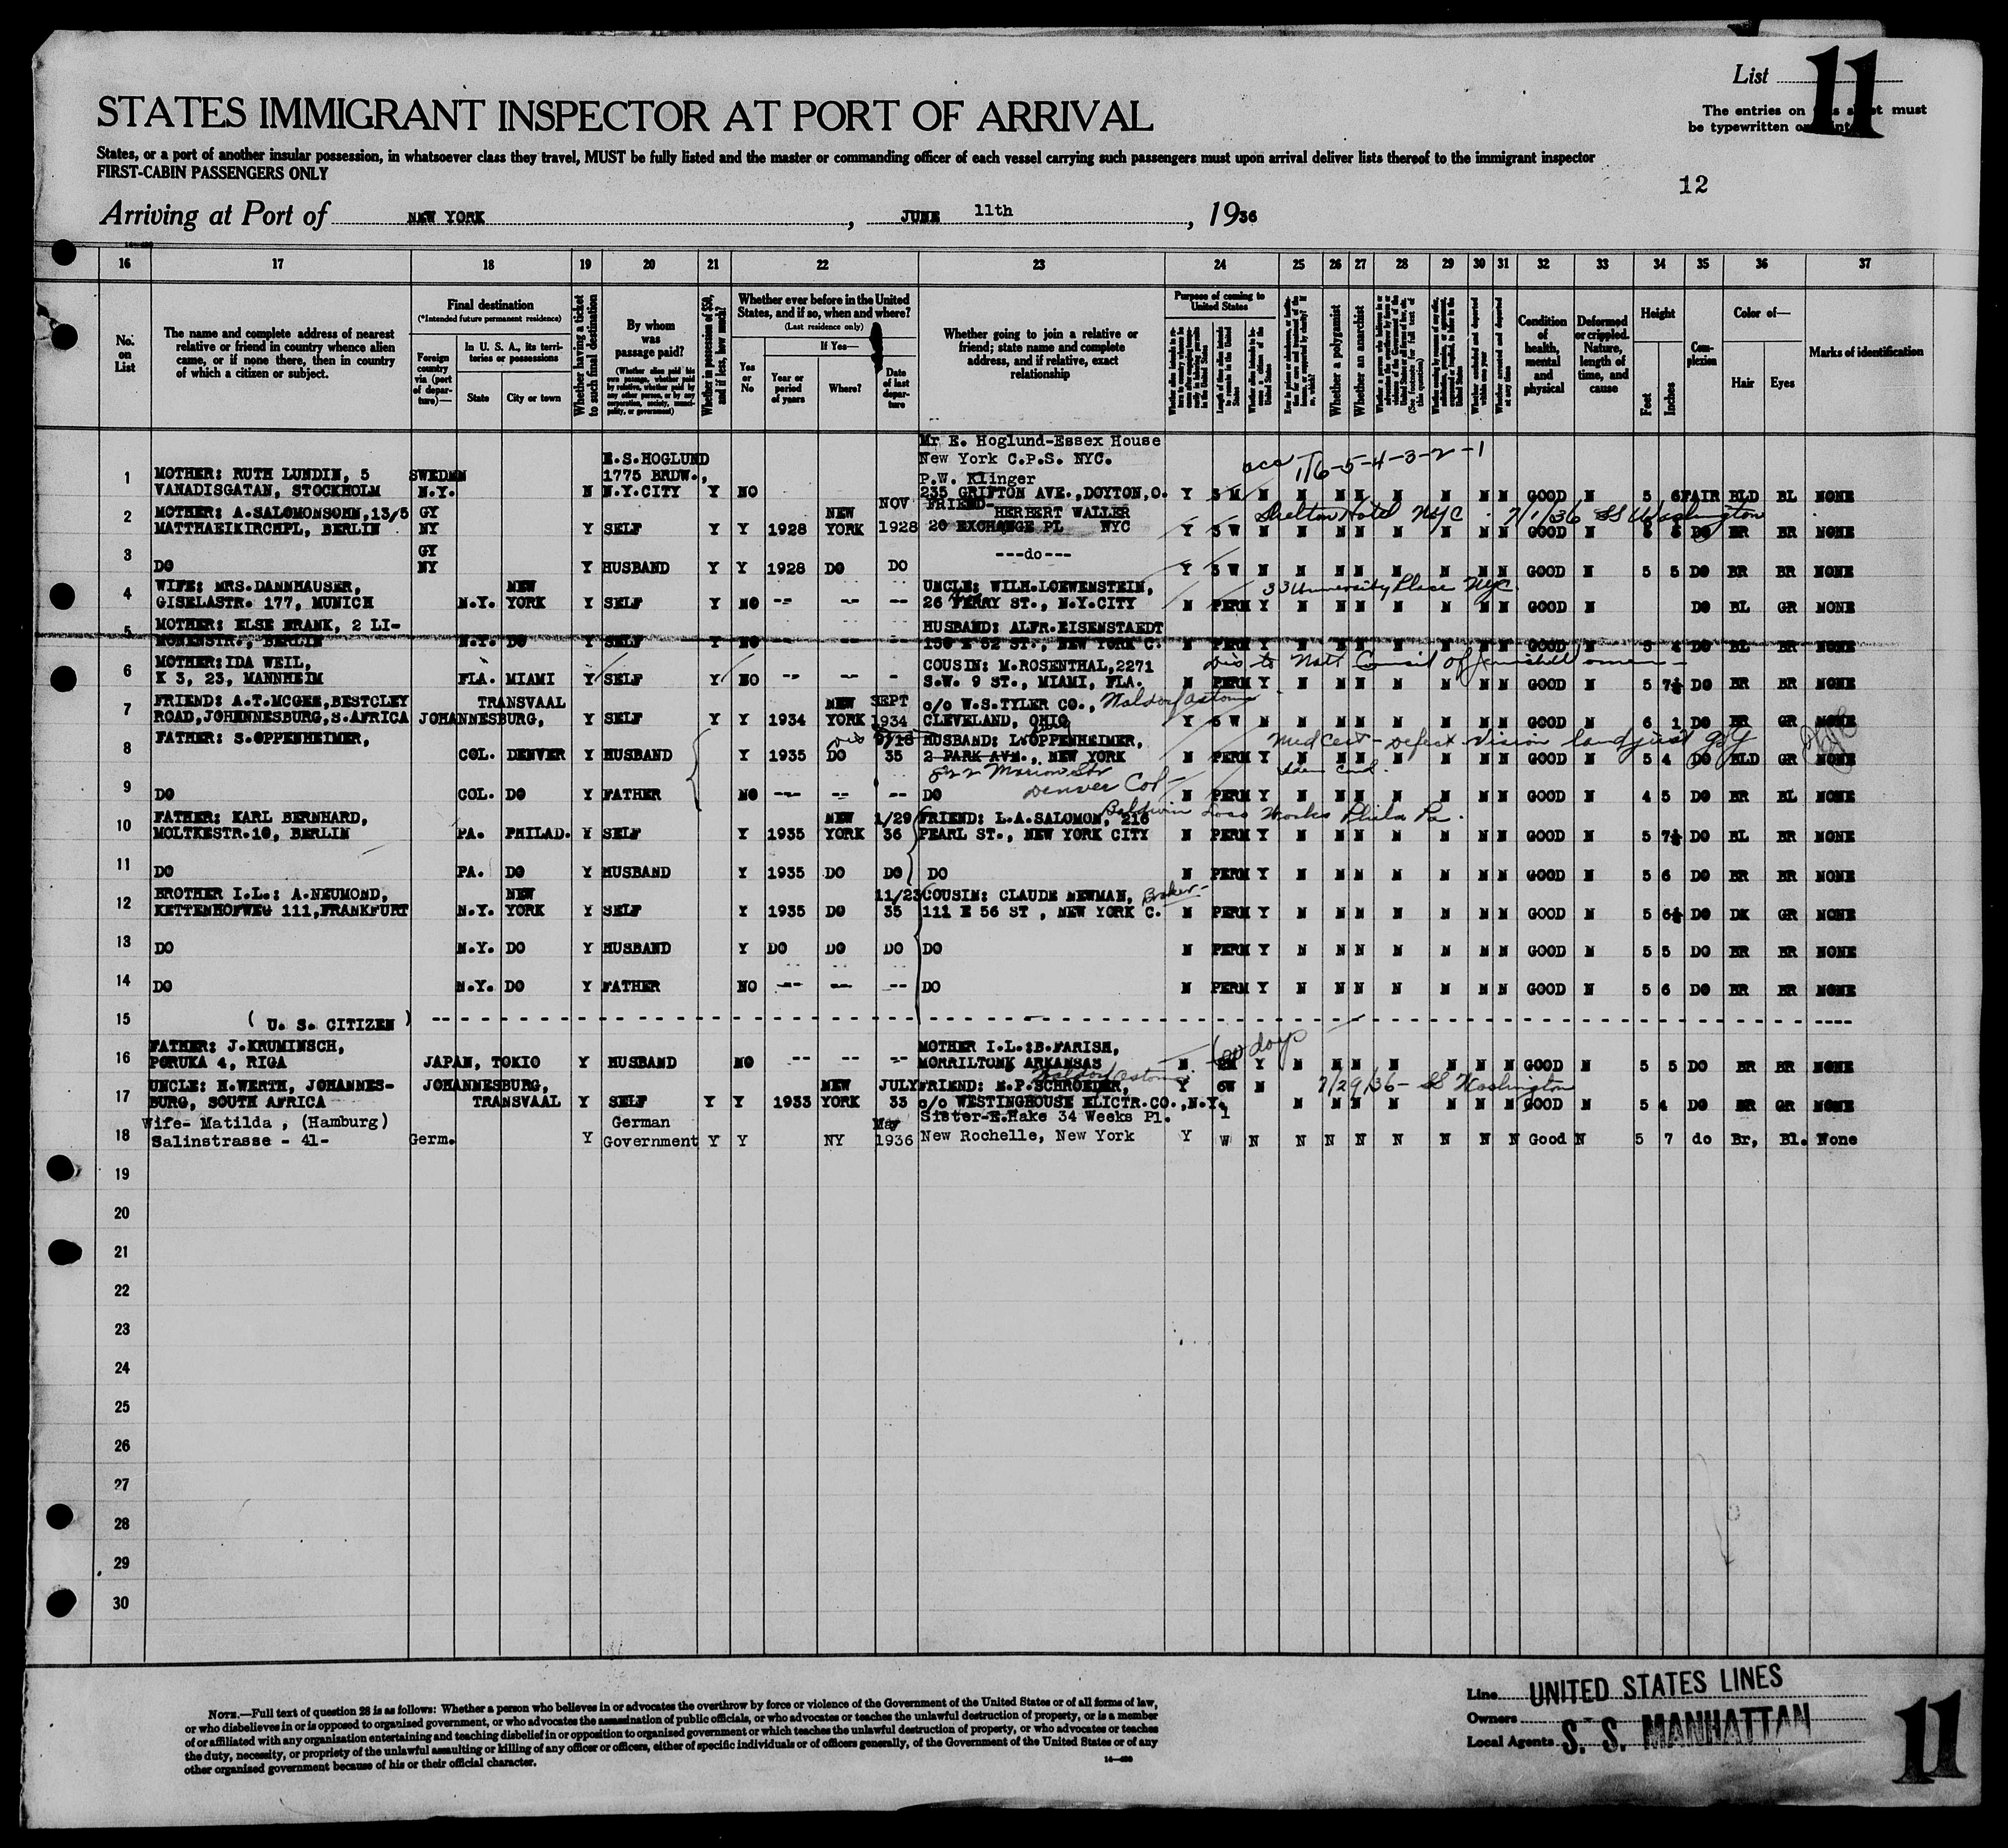 List 11
STATES IMMIGRANT INSPECTOR AT PORT OF ARRIVAL
The entries on must
be typewritten
States, or a port of another insular possession, in whatsoever class they travel, MUST be fully listed and the master or commanding officer of each vessel carrying such passengers must upon arrival deliver lists thereof to the immigrant inspector
FIRST-CABIN PASSENGERS ONLY
12
Arriving at Port of NEW YORK, JUNE 11th, 1936
16 17 18 19 20 21 22 23 24 25 26 27 28 29 30 31 32 33 34 35 36 37
No. on List
The name and complete address of nearest relative or friend in country whence alien came, or if none there, then in country of which a citizen or subject.
Final destination
(*Intended future permanent residence)
Foreign country via (port of departure)—
In U. S. A., its territories or possessions
State
City or town
Whether having a ticket to such final destination
By whom was passage paid?
(Whether alien paid his own passage, whether paid by relative, whether paid by any other person, or by any corporation, society, municipality, or government)
Whether in possession of $50, and if less, how much?
Whether ever before in the United States, and if so, when and where?
(Last residence only)
Yes or No
If Yes—
Year or period of years
Where?
Date of last departure
Whether going to join a relative or friend; state name and complete address, and if relative, exact relationship
Purpose of coming to United States
Whether a polygamist
Whether an anarchist
Condition of health, mental and physical
Deformed or crippled. Nature, length of time, and cause
Height
Feet
Inches
Complexion
Color of—
Hair
Eyes
Marks of identification
Mr E. Hoglund-Essex House
E.S.HOGLUND New York C.P.S. NYC.
1 MOTHER: RUTH LUNDIN, 5 SWEDEN 1775 BRDW., P.W. Klinger 1/6-5-4-3-2-1
VANADISGATAN, STOCKHOLM N.Y. N N.Y.CITY Y NO 235 GRIFTON AVE.,DOYTON,O. Y 3 M N N N N N N N N GOOD N 5 6 FAIR BLD BL NONE
2 MOTHER: A.SALOMONSOHN,13/5 GY NEW NOV FRIEND- HERBERT WALLER Shelton Hotel NYC 7/1/36 SS Washington
MATTHAEIKIRCHPL, BERLIN NY Y SELF Y Y 1928 YORK 1928 20 EXCHANGE PL NYC Y 3 W N N N N N N N N GOOD N 5 DO BR BR NONE
3 GY ---do---
DO NY Y HUSBAND Y Y 1928 DO DO Y 3 W N N N N N N N N GOOD N 5 5 DO BR BR NONE
4 WIFE: MRS.DANNHAUSER, NEW UNCLE: WILH.LOEWENSTEIN, 33 University Place NYC
GISELASTR. 177, MUNICH N.Y. YORK Y SELF Y NO -- -- -- 26 FERRY ST., N.Y.CITY N PERM Y N N N N N N N GOOD N DO BL GR NONE
5 MOTHER: ELSE FRANK, 2 LI- HUSBAND: ALFR.EISENSTAEDT
MONENSTR., BERLIN N.Y. DO Y SELF Y NO -- -- -- 150 E 52 ST., NEW YORK C. N PERM Y N N N N N N N GOOD N 5 4 DO BL BR NONE
6 MOTHER:IDA WEIL, COUSIN: M.ROSENTHAL,2271 Dis to Natl Council of Jewish Women
K 3, 23, MANNHEIM FLA. MIAMI Y SELF Y NO -- -- - S.W. 9 ST., MIAMI, FLA. N PERM Y N N N N N N N GOOD N 5 7½ DO BR BR NONE
7 FRIEND: A.T.MCGEE,BESTCLEY TRANSVAAL NEW SEPT c/o W.S.TYLER CO., Waldorf Astoria
ROAD,JOHANNESBURG,S.AFRICA JOHANNESBURG, Y SELF Y Y 1934 YORK 1934 CLEVELAND, OHIO Y 3 W N N N N N N N N GOOD N 6 1 DO BR GR NONE
8 FATHER: S.OPPENHEIMER, 9/18 HUSBAND: L.OPPENHEIMER, Med Cert - Defect Vision
COL. DENVER Y HUSBAND Y 1935 DO 35 2 PARK AVE., NEW YORK N PERM Y N N N N N N N GOOD N 5 4 DO BLD GR NONE
822 Marion Str
Denver Col
9 DO COL. DO Y FATHER NO --- -- -- DO N PERM Y N N N N N N N GOOD N 4 5 DO BR BL NONE
10 FATHER: KARL BERNHARD, NEW 1/29 FRIEND: L.A.SALOMON, 216 Baldwin Loco Works Phila Pa.
MOLTKESTR.10, BERLIN PA. PHILAD. Y SELF Y 1935 YORK 36 PEARL ST., NEW YORK CITY N PERM Y N N N N N N N GOOD N 5 7½ DO BL BR NONE
11 DO PA. DO Y HUSBAND Y 1935 DO DO DO N PERM Y N N N N N N N GOOD N 5 6 DO BR BR NONE
12 BROTHER I.L.: A.NEUMOND, NEW 11/23 COUSIN: CLAUDE NEWMAN,
KETTENHOFWEG 111,FRANKFURT N.Y. YORK Y SELF Y 1935 DO 35 111 E 56 ST , NEW YORK C. N PERM Y N N N N N N N GOOD N 5 6½ DO DK GR NONE
13 DO N.Y. DO Y HUSBAND Y DO DO DO DO N PERM Y N N N N N N N GOOD N 5 5 DO BR BR NONE
14 DO N.Y. DO Y FATHER NO --- -- -- DO N PERM Y N N N N N N N GOOD N 5 6 DO BR BR NONE
15 ( U. S. CITIZEN )
16 FATHER: J.KRUMINSCH, MOTHER I.L.:B.FARISH, 60 days
PORUKA 4, RIGA JAPAN, TOKIO Y HUSBAND NO -- -- -- MORRILTONK ARKANSAS N Y N N N N N N N GOOD N 5 5 DO BR BR NONE
Waldorf Astoria
17 UNCLE: H.WERTH, JOHANNES- JOHANNESBURG, NEW JULY FRIEND: M.P.SCHROEDER, Y 6W N 7/29/36 - SS Washington
BURG, SOUTH AFRICA TRANSVAAL Y SELF Y Y 1933 YORK 33 c/o WESTINGHOUSE ELICTR.CO.,N.Y. N N N N N N N GOOD N 5 4 DO BR GR NONE
18 Wife- Matilda , (Hamburg) German May Sister-E.Hake 34 Weeks Pl. 1
Salinstrasse - 41- Germ. Y Government Y Y NY 1936 New Rochelle, New York Y W N N N N N N N N Good N 5 7 do Br, Bl. None
19
20
21
22
23
24
25
26
27
28
29
30
NOTE.—Full text of question 28 is as follows: Whether a person who believes in or advocates the overthrow by force or violence of the Government of the United States or of all forms of law,
or who disbelieves in or is opposed to organized government, or who advocates the assassination of public officials, or who advocates or teaches the unlawful destruction of property, or is a member
of or affiliated with any organization entertaining and teaching disbelief in or opposition to organized government or which teaches the unlawful destruction of property, or who advocates or teaches
the duty, necessity, or propriety of the unlawful assaulting or killing of any officer or officers, either of specific individuals or of officers generally, of the Government of the United States or of any
other organized government because of his or their official character.
Line UNITED STATES LINES
Owners
Local Agents S. S. MANHATTAN
11